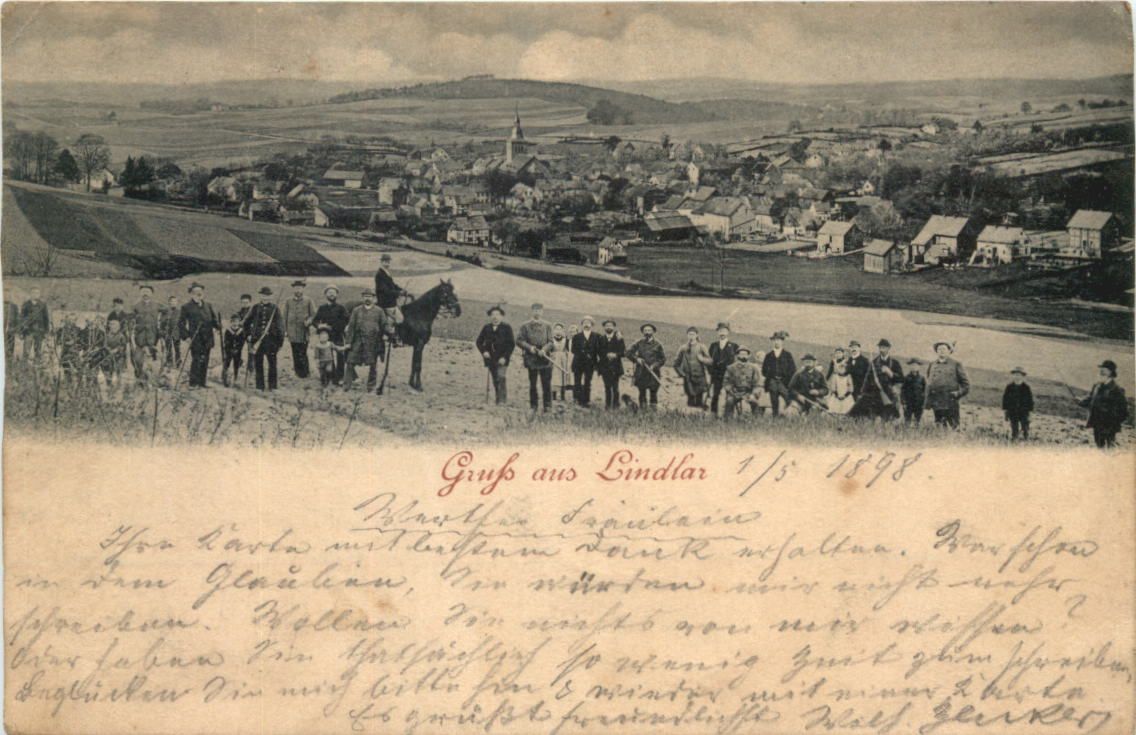 Gruß aus Lindlar 1/5 1898.
Werthes Fräulein
Ihre Karte mit bestem Dank erhalten. War schon
in dem Glauben, Sie würden mir nicht mehr
schreiben. Wollen Sie nichts von mir wissen?
Oder haben Sie thatsächlich so wenig Zeit zum schreiben,
Beglücken Sie mich bitte hin & wieder mit einer Karte
Es grüßt freundlichst Wilh.